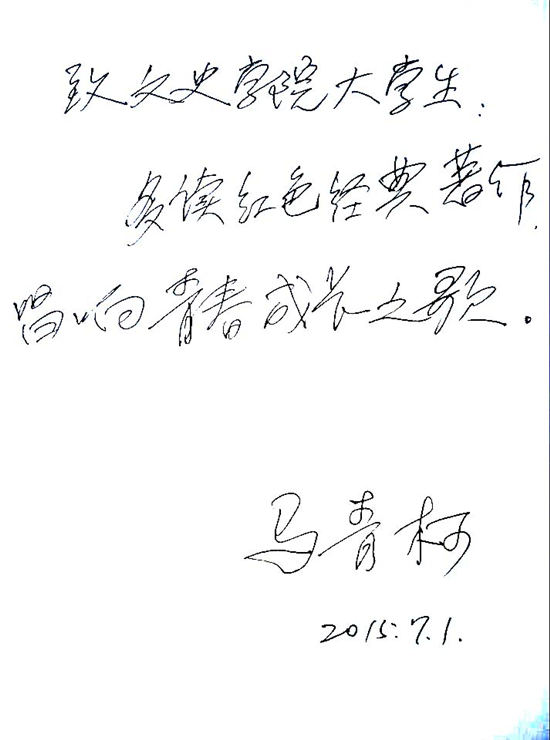 致文史学院大学生:
多读红色经典著作,
唱响青春成长之歌。
马青柯
2015.7.1.